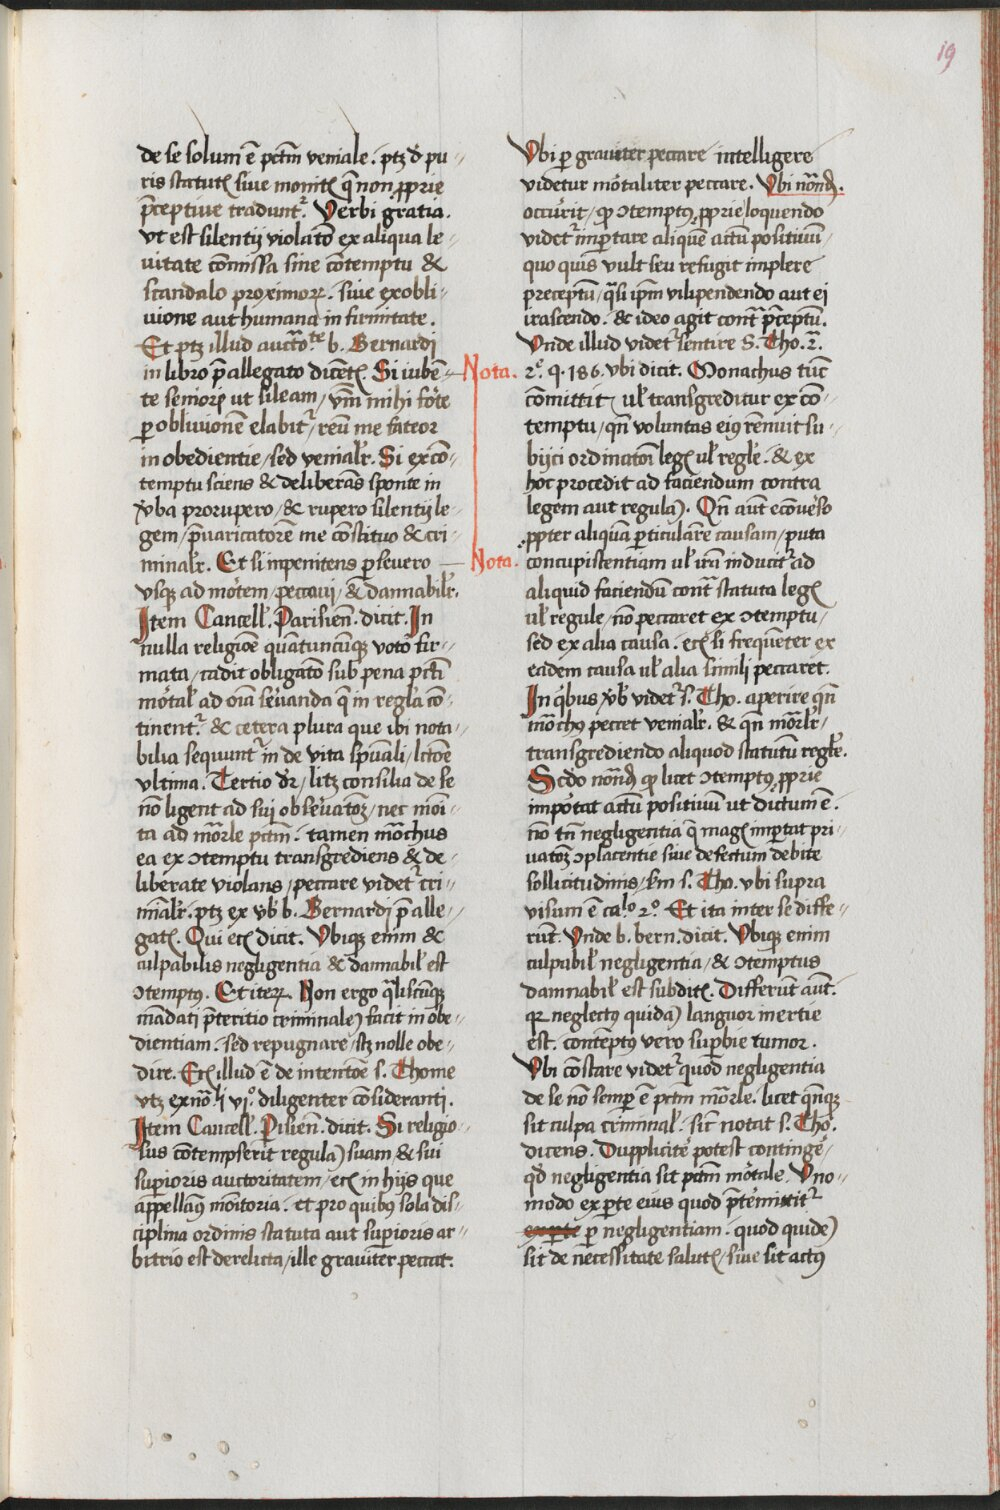 19
de se solum ē pctm̄ veniale. ptꝫ d̄ pu-
ris statutꝭ siue monitꝭ q̄ non ꝓprie
p̄ceptiue tradunt᷑. Verbi gratia.
vt est silentij violatō ex aliqua le-
uitate cōmissa sine cōtemptu &
scandalo proximoꝝ. siue ex obli-
uione aut humana in firmitate.
Et ptꝫ illud auctōte b. Bernardi
in libro p̄allegato dicētꝭ. Si iuben-
te seniore ut sileam / vm̄ mihi fōte
ꝑ obliuionē elabit᷑ / reū me fateor
inobedientie / sed venialr̄. Si ex cō-
temptu sciens & deliberās sponte in
v̄ba prorupero / & rupero silentij le-
gem / p̄uaricatorē me cōstituo & cri-
minalr̄. Et si inpenitens ꝑseuero
vsqꝫ ad mōtem / peccaui / & dannabilr̄.
Item Cancell̄. Parisien̄. dicit. In
nulla religiōe quātuncūqꝫ votō fir-
mata / cadit obligatō sub pena pctī
mōtal̄ ad oīa sēuanda q̄ in regla cō-
tinent᷑. & cetera plura que ibi nota-
bilia sequunt᷑ in de vita spūali / lctōe
vltima. Tertio dr̄ / litꝫ consilia de se
nō ligent ad sui obseruatōꝫ / nec moi-
ta ad mōrle pctm̄. tamen mōchus
ea ex ꝯtemptu transgrediens & de-
liberate violans / peccare videt᷑ cri-
mīalr̄. ptꝫ ex v̄b b. Bernardi p̄alle-
gatꝭ. Qui etꝭ dicit. Vbiqꝫ enim &
culpabilis negligentia & dannabil̄ est
ꝯtemptꝰ. Et iteꝝ. Non ergo q̄liscūqꝫ
mādati p̄teritio criminalē facit inobe-
dientiam. sed repugnare / scꝫ nolle obe-
dire. Etꝭ illud ē de intentōe s. Thome
vtꝫ ex nōli vjº. diligenter cōsideranti.
Item Cancell̄. Pisien̄. dicit. Si religio-
sus cōtempserit regulā suam & sui
suꝑioris auctoritatem / etꝭ in hijs que
appellam̄ monitoria. et pro quibꝰ sola dis-
ciplina ordinis statuta aut suꝑioris ar-
bitrio est derelicta / ille grauiter peccat.
Nota.
Nota.
Vbi ꝑ grauiter peccare intelligere
videtur mōtaliter peccare. Vbi nōnd̄.
occurit / ꝙ ꝯtemptꝰ ꝓprie loquendo
videt᷑ inꝑtare aliquē actū positiuū /
quo quis vult seu refugit implere
preceptū / q̄si ipm̄ vilipendendo aut ei
irascendo. & ideo agit contͣ p̄ceptū.
Vnde illud videt᷑ sentire S. Tho. 2ͣ.
2ͤ. q. 186. vbi dicit. Monachus tūc
cōmittit / ul̄ transgreditur ex cō-
temptu / qn̄ voluntas eiꝰ rēnuit su-
bijci ordinatōi legꝭ ul̄ regle. & ex
hoc procedit ad faciendum contra
legem aut regulā. Qn̄ aūt ecōuēso
ꝓpter aliquā ꝑticularē causam / puta
concupistentiam ul̄ irā inducit᷑ ad
aliquid faciendū contͣ statuta legꝭ
ul̄ regule / nō peccaret ex ꝯtemptu /
sed ex alia causa. etꝭ si frequēter ex
eadem causa ul̄ alia simili peccaret.
In qͥbus v̄b videt᷑ s. Tho. aperire qn̄
mōchꝰ peccet venialr̄. & qn̄ mōrlr̄
transgrediendo aliquod statutū regle.
Scd̄o nōnd̄ ꝙ licet ꝯtemptꝰ ꝓprie
impōtat actū positiuū ut dictum ē.
nō tn̄ negligentia q̄ magꝭ inꝑtat pri-
uatōꝫ ꝯplacentie siue defectum debite
sollicitudinis / scd̄m s. Tho. vbi supra
visum ē calº 2º. Et ita inter se diffe-
rūt. Vnde b. bern. dicit. Vbiqꝫ enim
culpabil̄ negligentia / & ꝯtemptus
damnabil̄ est subditꝭ. Differūt aūt.
qꝛ neglectꝰ quidā languor inertie
est. contēptꝰ vero suꝑbie tumor.
Vbi cōstare videt᷑ quod negligentia
de se nō semꝑ ē pctm̄ mōrle. licet qn̄qꝫ
sit culpa criminal̄. sic̄ notat s. Tho.
dicens. Dupplicitē potest contingē /
qd̄ negligentia sit pctm̄ mōtale. Vno-
modo ex ꝑte eius quod p̄termittit᷑
ꝑ negligentiam. quod quidē
sit de necessitate salutꝭ / siue sit actꝰ